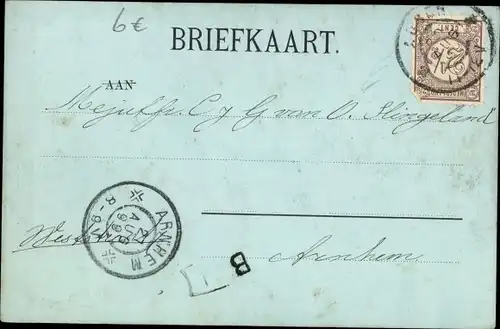 6€
BRIEFKAART.
AAN
Mejuffr. C J G van O. Slingeland
Arnhem
ARNHEM
8-9
AUG
99
B